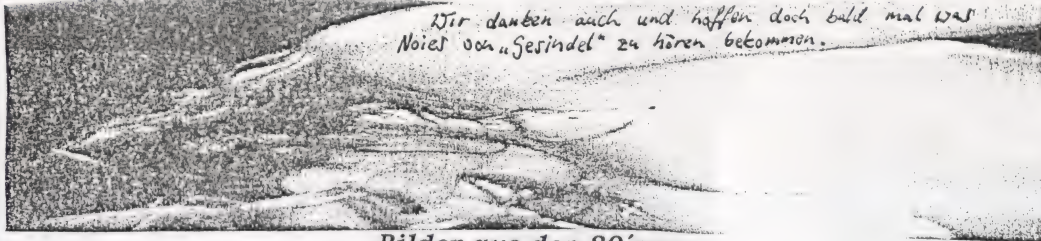 Wir danken auch und hoffen doch bald mal was
Noies von „Gesindel“ zu hören bekommen.
Bilder aus den 80'